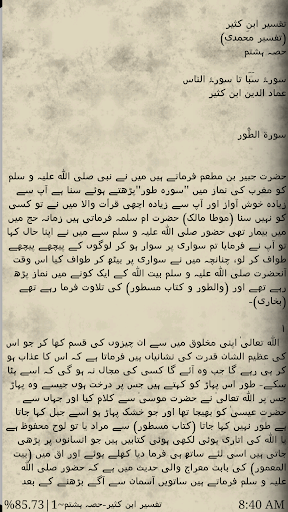 تفسیر ابن کثیر
(تفسیر محمدی)
حصہ ہشتم
سورۃ سبّا تا سورۃ الناس
عماد الدین ابن کثیر
سورۃ الطُّور
حضرت جبیر بن مطعم فرماتے ہیں میں نے نبی صلی اللہ علیہ و سلم
کو مغرب کی نماز میں "سورہ طور"پڑھتے ہوئے سنا ہے آپ سے
زیادہ خوش آواز اور آپ سے زیادہ اچھی قرأت والا میں نے تو کسی
کو نہیں سنا (موطا مالک) حضرت ام سلمہ فرماتی ہیں زمانہ حج میں
میں بیمار تھی حضور صلی اللہ علیہ و سلم سے میں نے اپنا حال کہا
تو آپ نے فرمایا تم سواری پر سوار ہو کر لوگوں کے پیچھے پیچھے
طواف کر لو، چنانچہ میں نے سواری پر بیٹھ کر طواف کیا اس وقت
آنحضرت صلی اللہ علیہ و سلم بیت اللہ کے ایک کونے میں نماز پڑھ
رہے تھے اور (والطور و کتاب مسطور) کی تلاوت فرما رہے تھے
(بخاری)۔
۱
اللہ تعالیٰ اپنی مخلوق میں سے ان چیزوں کی قسم کھا کر جو اس
کی عظیم الشان قدرت کی نشانیاں ہیں فرماتا ہے کہ اس کا عذاب ہو
کر ہی رہے گا جب وہ آئے گا کسی کی مجال نہ ہو گی کہ اسے ہٹا
سکے۔ طور اس پہاڑ کو کہتے ہیں جس پر درخت ہوں جیسے وہ پہاڑ
جس پر اللہ تعالیٰ نے حضرت موسیٰ سے کلام کیا اور جہاں سے
حضرت عیسیٰ کو بھیجا تھا اور جو خشک پہاڑ ہو اسے جبل کہا جاتا
ہے طور نہیں کہا جاتا (کتاب مسطور) سے مراد یا تو لوح محفوظ ہے
یا اللہ کی اتاری ہوئی لکھی ہوئی کتابیں ہیں جو انسانوں پر پڑھی
جاتی ہیں اسی لئے ساتھ ہی فرما دیا کھلے ہوئے اور اق میں (بیت
المعمور) کی بابت معراج والی حدیث میں ہے کہ حضور صلی اللہ
علیہ و سلم فرماتے ہیں ساتویں آسمان سے آگے بڑھنے کے بعد
%85.73|1~تفسیر ابن کثیر-حصہ ہشتم 8:40 AM